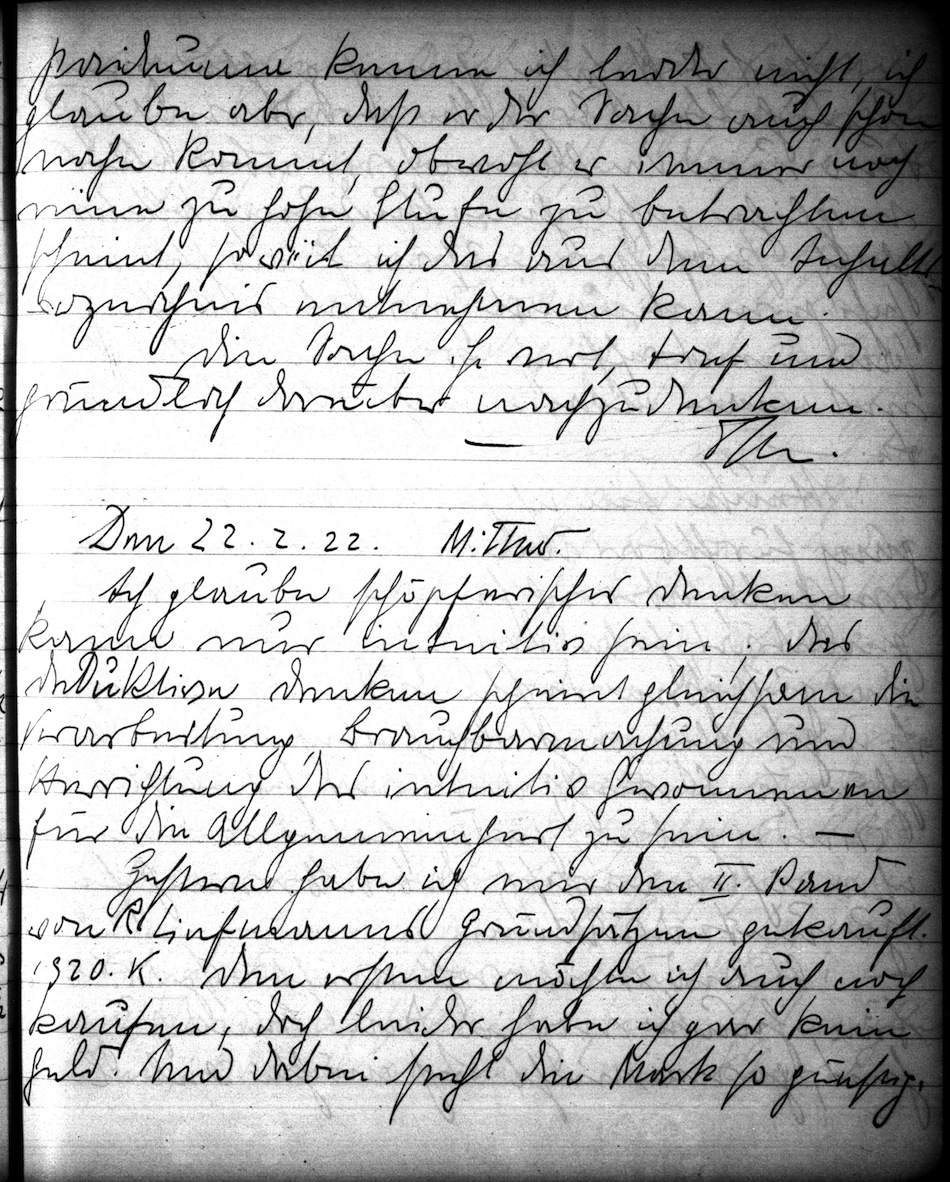 kenne ich leider nicht, ich
glaube aber, daß er der Sache auch schon
nahe kommt, obwohl er immer noch
eine zu hohe Stufe zu betrachten
scheint, soweit ich das aus dem Inhalts
verzeichnis entnehmen kann.
Die Sache ist wert, tief und
gründlich darüber nachzudenken.
Den 22.2.22. Mittw.
Ich glaube schöpferisches denken
kann nur intuitiv sein; das
deduktive denken scheint gleichsam die
Verarbeitung, Brauchbarmachung und
Herrichtung des intuitiv Gewonnenen
für die Allgemeinheit zu sein. —
Gestern habe ich mir den II. Band
von R. Liefmanns Grundsätzen gekauft.
1920. K. Den ersten möchte ich auch noch
kaufen, doch leider habe ich gar kein
Geld. Und dabei steht die Mark so günstig.